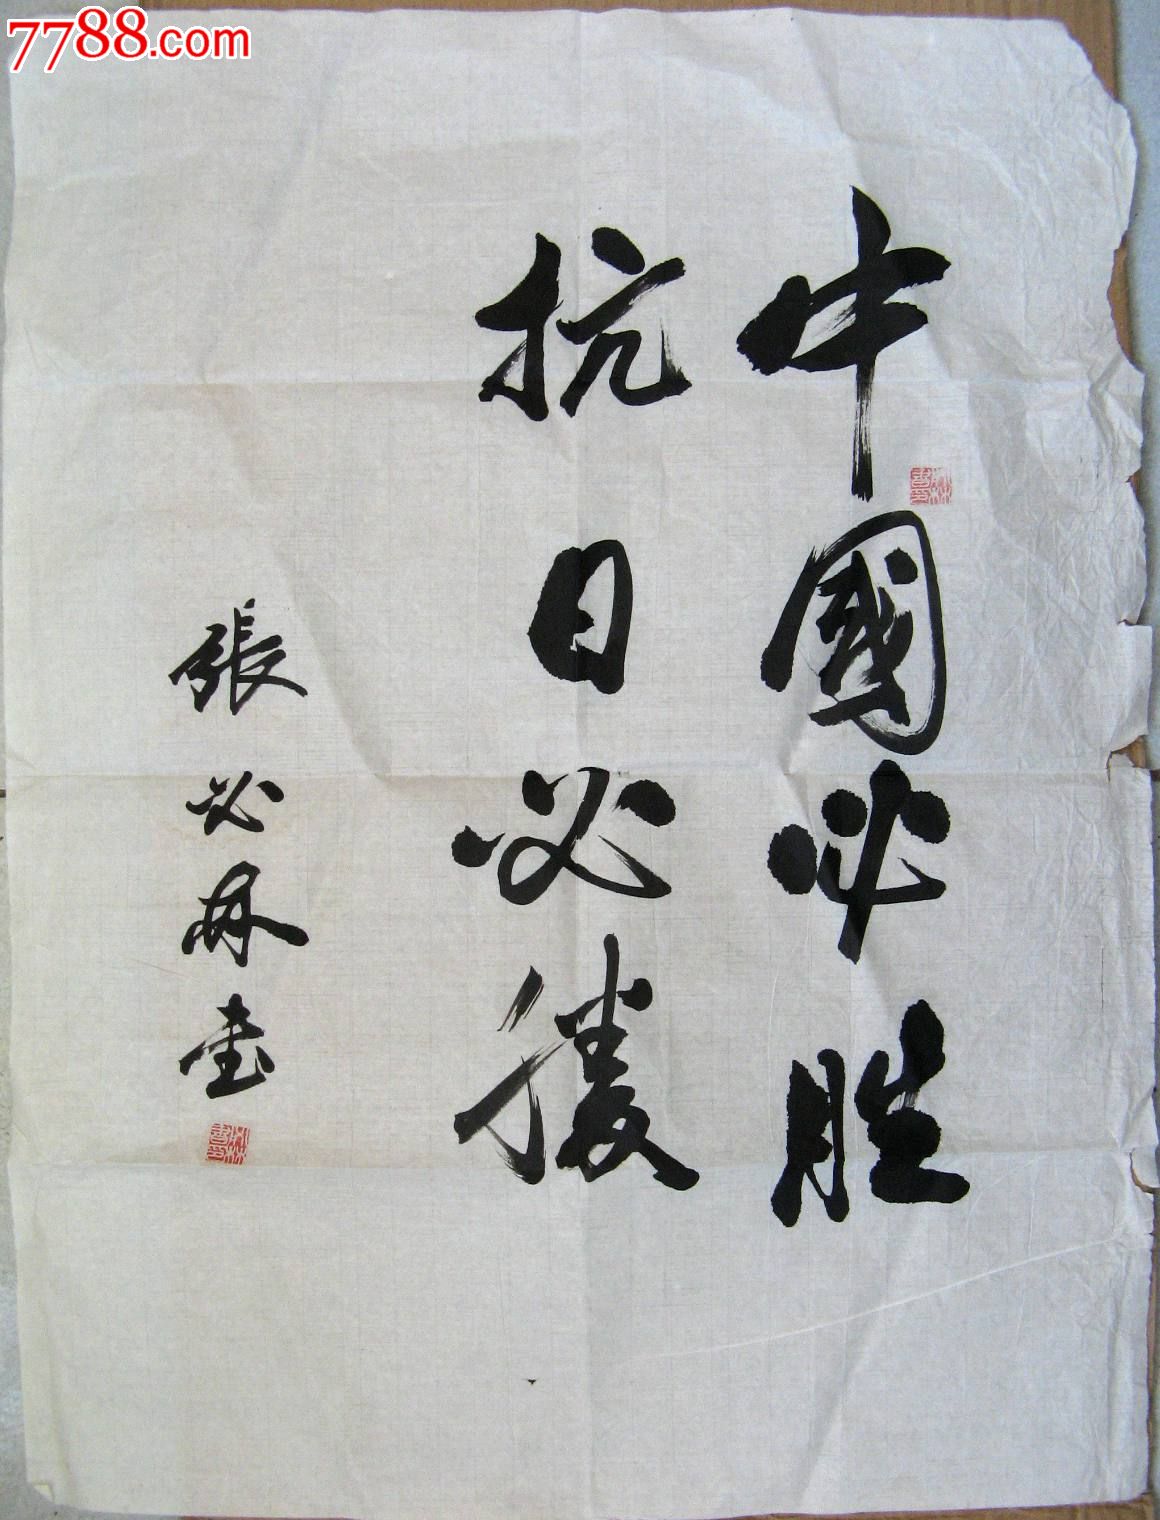 7788.com
中國必胜
抗日必勝
張必林書